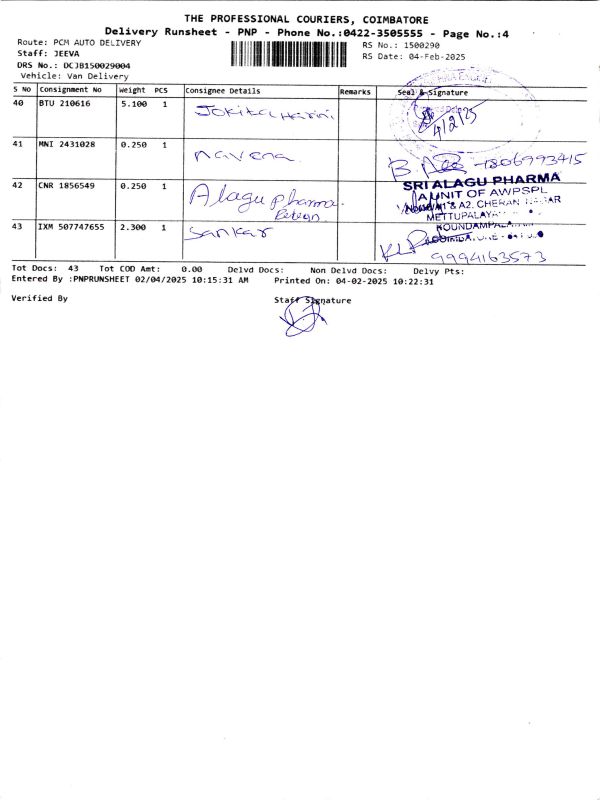 THE PROFESSIONAL COURIERS, COIMBATORE
Delivery Runsheet - PNP - Phone No.:0422-3505555 - Page No.:4
Route: PCM AUTO DELIVERY
RS No.: 1500290
Staff: JEEVA
RS Date: 04-Feb-2025
DRS No.: DCJB150029004
Vehicle: Van Delivery
S No Consignment No Weight PCS Consignee Details Remarks Seal & Signature
40 BTU 210616 5.100 1
4/2/25
41 MNI 2431028 0.250 1 navena
42 CNR 1856549 0.250 1 Alagu pharma
SRI ALAGU PHARMA
A UNIT OF AWPSPL
& A2. CHERAN NAGAR
43 IXM 507747655 2.300 1 Sankar
9994163573
Tot Docs: 43 Tot COD Amt: 0.00 Delvd Docs: Non Delvd Docs: Delvy Pts:
Entered By :PNPRUNSHEET 02/04/2025 10:15:31 AM Printed On: 04-02-2025 10:22:31
Verified By Staff Signature